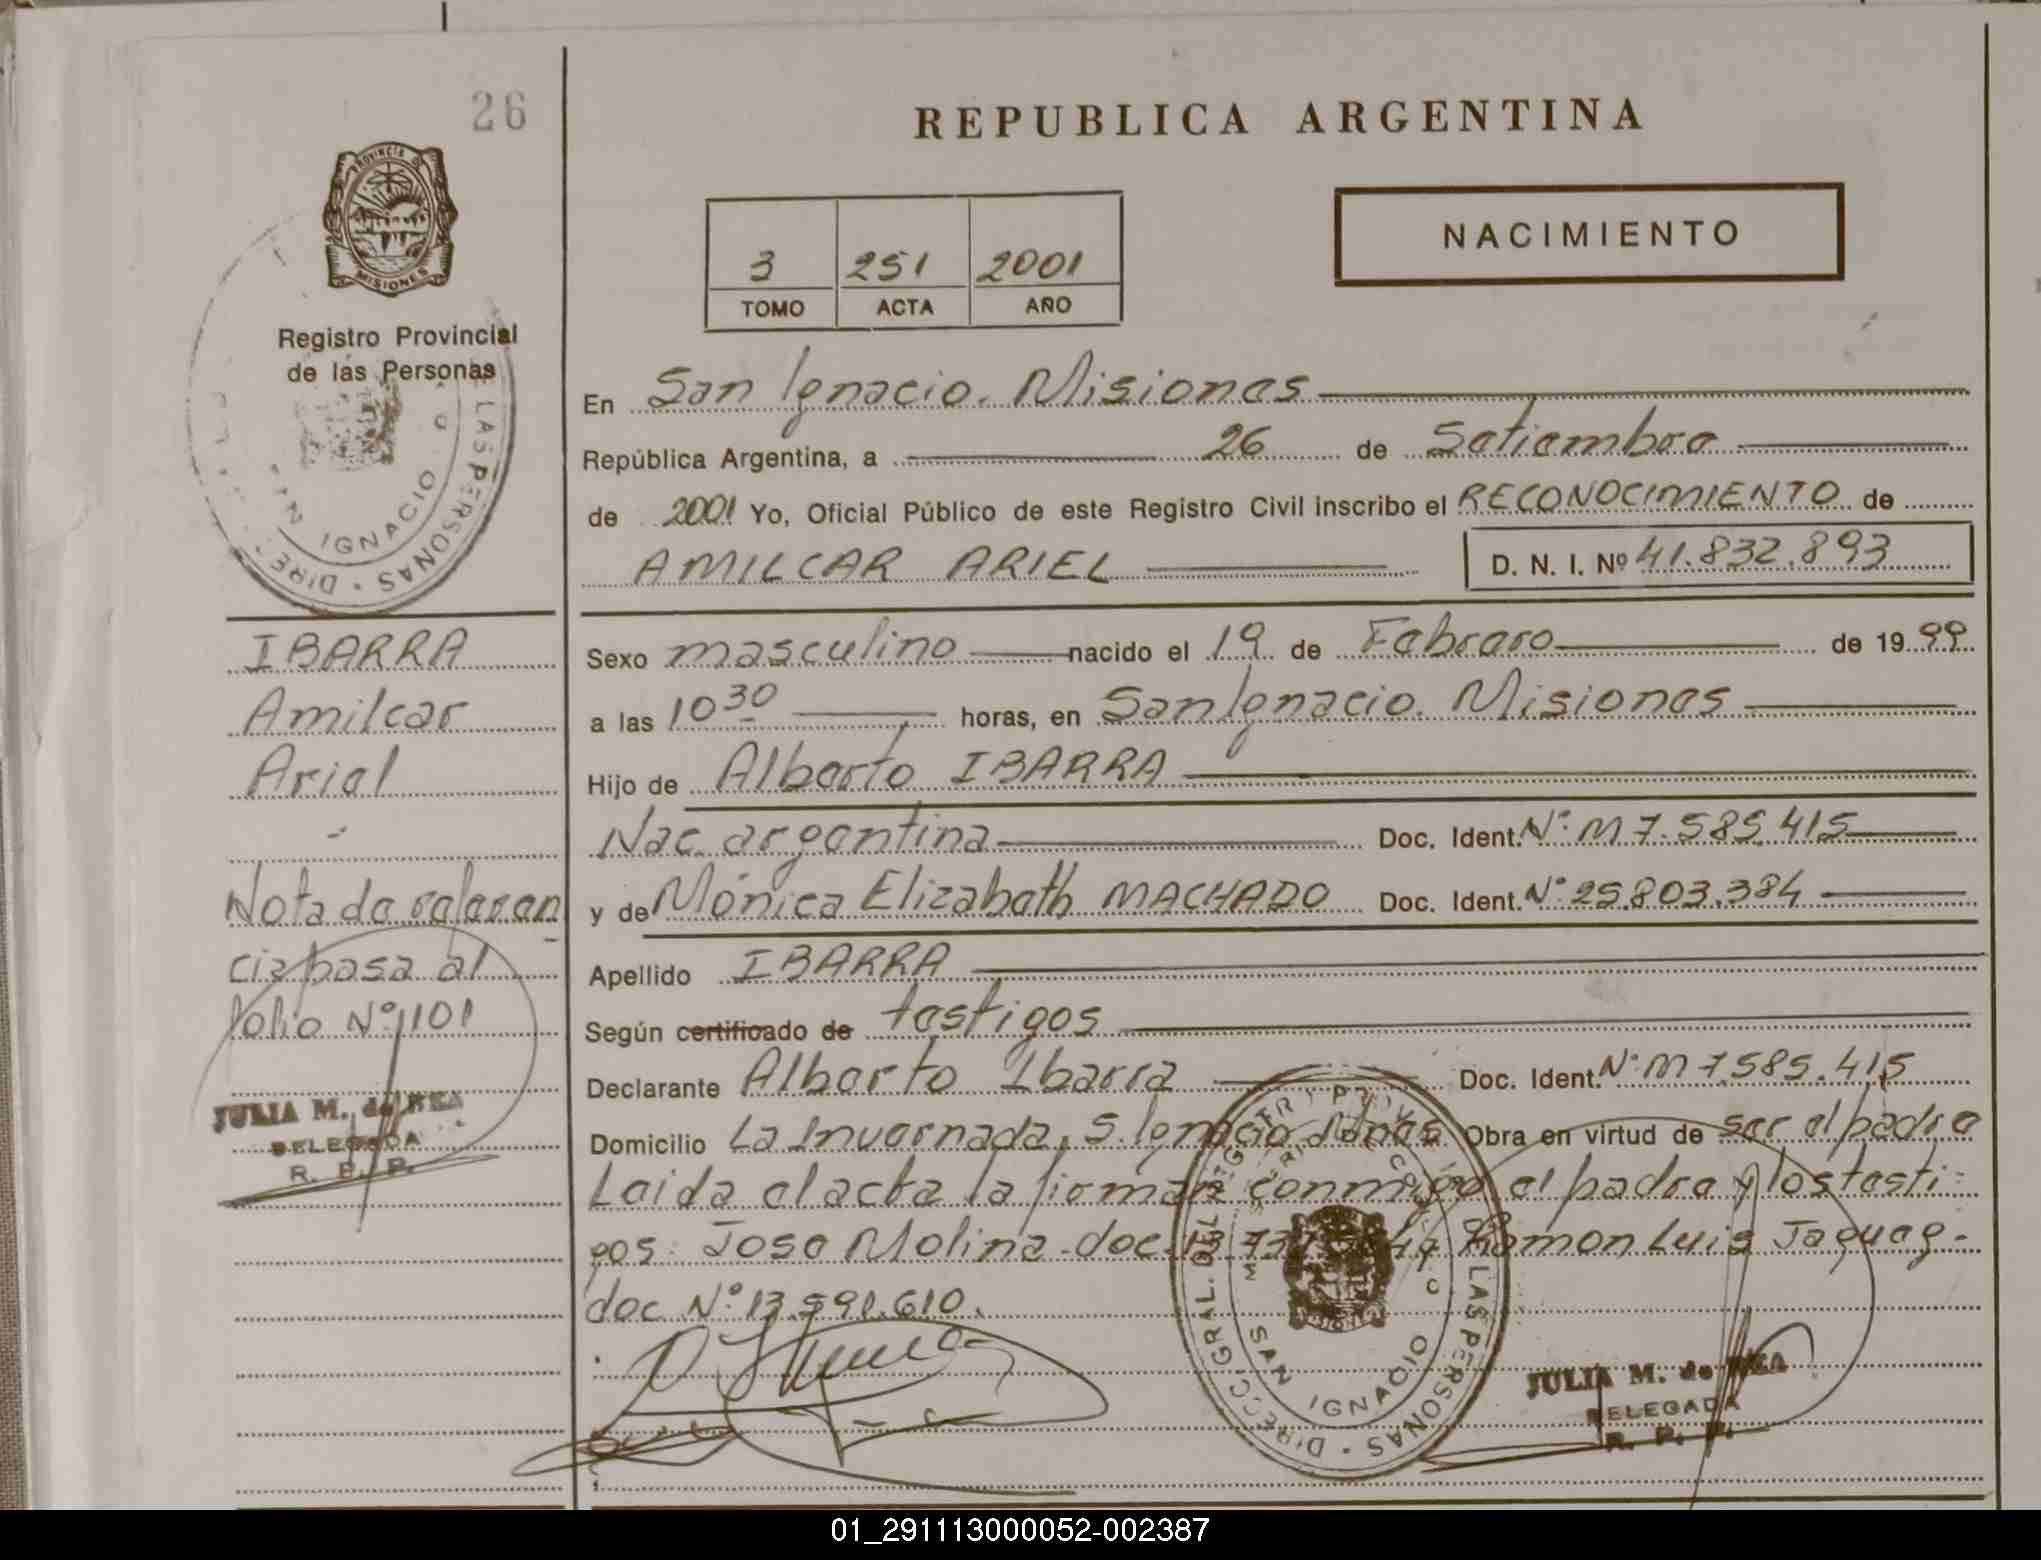 26
REPUBLICA ARGENTINA
PROVINCIA DE MISIONES
Registro Provincial
de las Personas
3 251 2001
TOMO ACTA AÑO
NACIMIENTO
En San Ignacio. Misiones
República Argentina, a 26 de Setiembre
de 2001 Yo, Oficial Público de este Registro Civil inscribo el RECONOCIMIENTO de
AMILCAR ARIEL D. N. I. Nº 41.832.893
LAS PERSONAS · DIRE
SAN IGNACIO
IBARRA
Amilcar
Ariel
Nota de referen
cia pasa al
folio Nº 101
JULIA M. de REA
DELEGADA
R. P. P.
Sexo masculino nacido el 19 de Febrero de 1999
a las 10 30 horas, en San Ignacio. Misiones
Hijo de Alberto IBARRA
Nac. argentina Doc. Ident. Nº M 7.585.415
y de Mónica Elizabeth MACHADO Doc. Ident. Nº 25.803.384
Apellido IBARRA
Según certificado de testigos
Declarante Alberto Ibarra Doc. Ident. Nº M 7.585.415
Domicilio La Invernada, S. Ignacio Mnes. Obra en virtud de ser el padre
Leida el acta la firman conmigo el padre y los testi-
gos: Jose Molina doc. Ramon Luis
doc Nº 13.591.610.
DIRECC. GRAL. DEL REGISTRO PROV. DE LAS PERSONAS
SAN IGNACIO
JULIA M. de REA
DELEGADA
R. P. P.
01_291113000052-002387